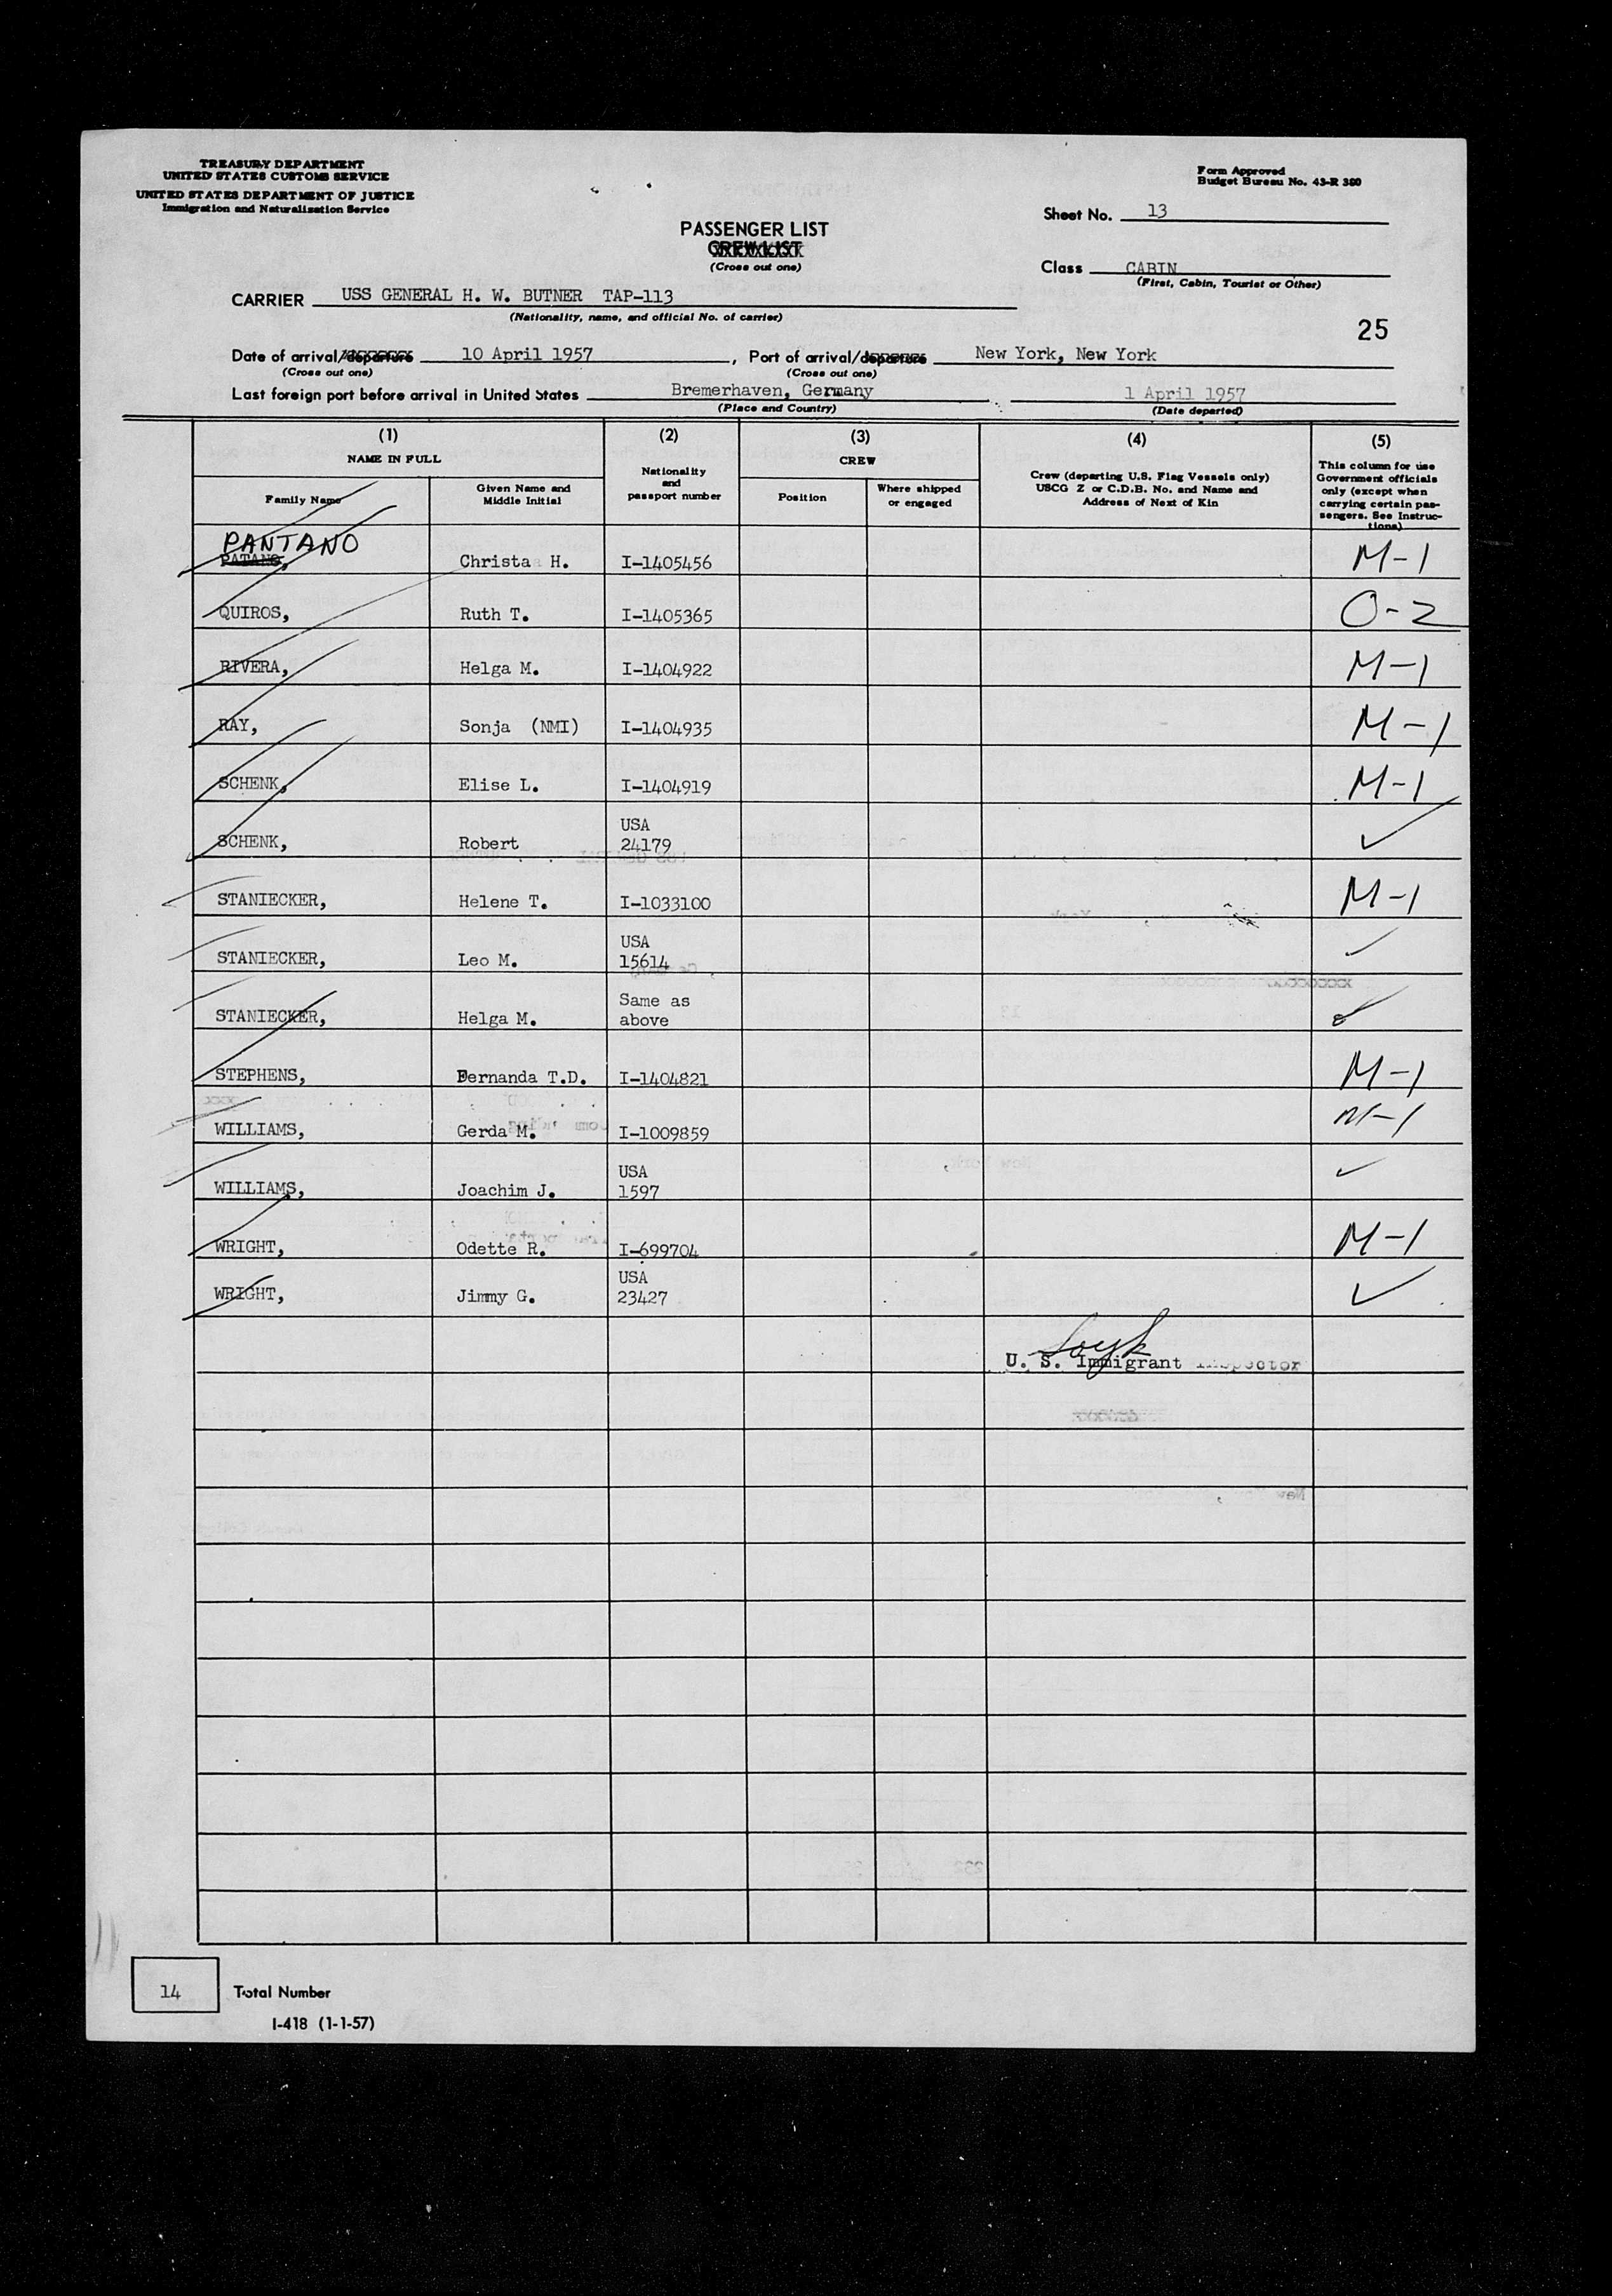 TREASURY DEPARTMENT
UNITED STATES CUSTOMS SERVICE
UNITED STATES DEPARTMENT OF JUSTICE
Immigration and Naturalization Service
Form Approved
Budget Bureau No. 43-R 380
Sheet No. 13
PASSENGER LIST
CREW LIST
(Cross out one)
Class CABIN
(First, Cabin, Tourist or Other)
CARRIER USS GENERAL H. W. BUTNER TAP-113
(Nationality, name, and official No. of carrier)
25
Date of arrival/departure 10 April 1957, Port of arrival/departure New York, New York
(Cross out one) (Cross out one)
Last foreign port before arrival in United States Bremerhaven, Germany 1 April 1957
(Place and Country) (Date departed)
(1) (2) (3) (4) (5)
NAME IN FULL
Family Name
Given Name and
Middle Initial
Nationality
and
passport number
CREW
Position
Where shipped
or engaged
Crew (departing U.S. Flag Vessels only)
USCG Z or C.D.B. No. and Name and
Address of Next of Kin
This column for use
Government officials
only (except when
carrying certain pas-
sengers. See Instruc-
tions)
PANTANO
PATANO, Christa H. I-1405456 M-1
QUIROS, Ruth T. I-1405365 O-2
RIVERA, Helga M. I-1404922 M-1
RAY, Sonja (NMI) I-1404935 M-1
SCHENK, Elise L. I-1404919 M-1
USA
SCHENK, Robert 24179 ✓
STANIECKER, Helene T. I-1033100 M-1
USA
STANIECKER, Leo M. 15614 ✓
Same as
STANIECKER, Helga M. above ✓
STEPHENS, Fernanda T.D. I-1404821 M-1
WILLIAMS, Gerda M. I-1009859 M-1
USA
WILLIAMS, Joachim J. 1597 ✓
WRIGHT, Odette R. I-699704 M-1
USA
WRIGHT, Jimmy G. 23427 ✓
U. S. Immigrant Inspector
14 Total Number
I-418 (1-1-57)